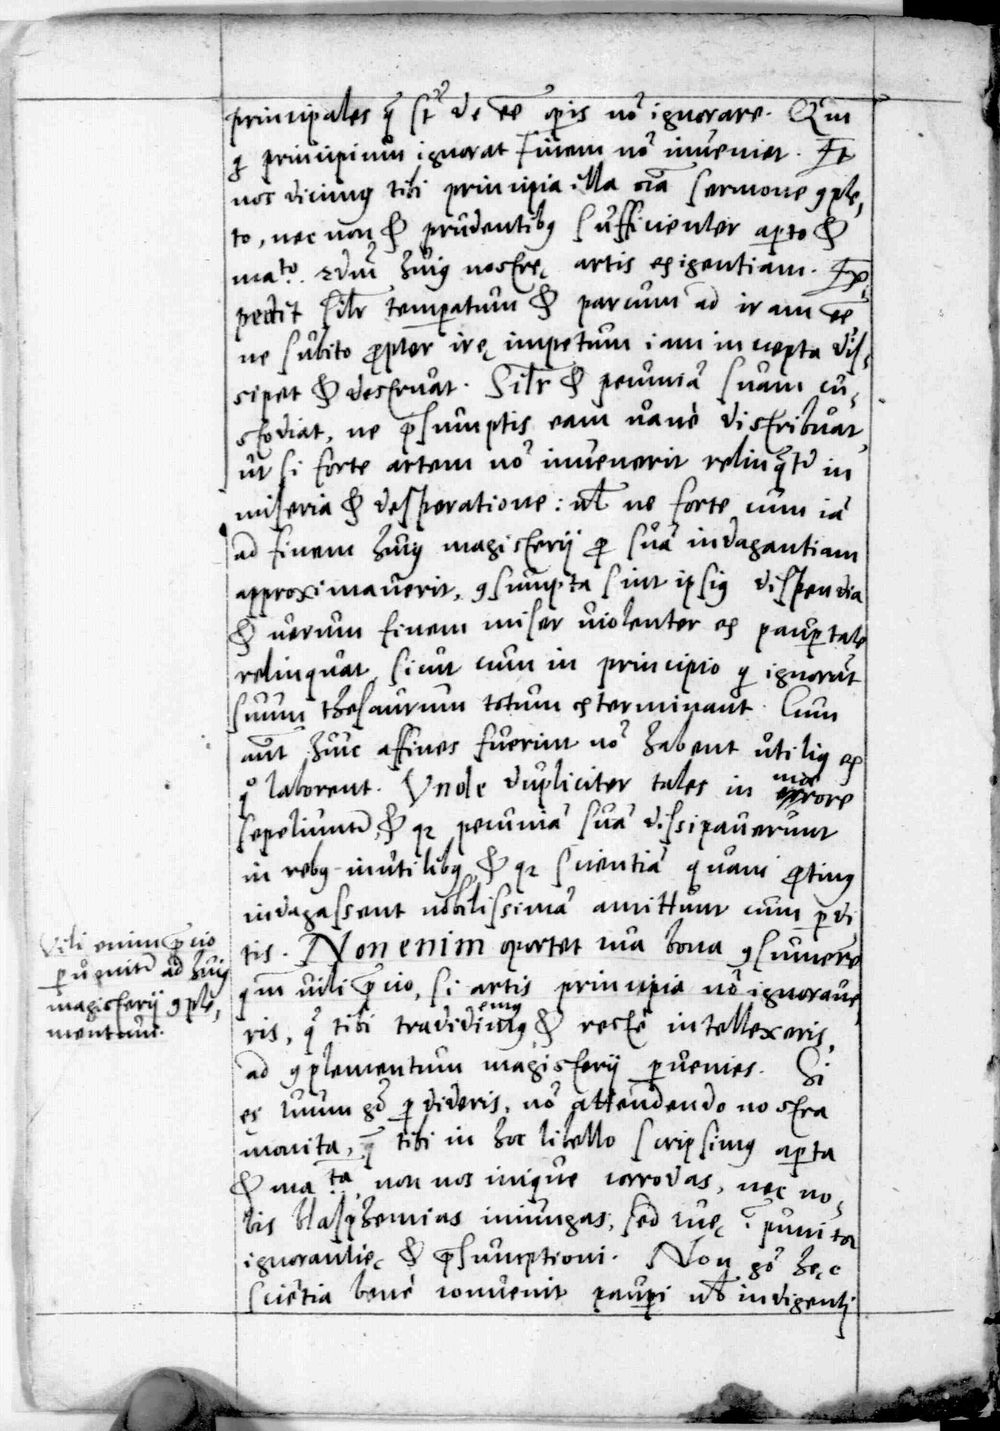 principales q̃ st̃ de eẽ op̃is nõ ignorare. Qm̃
q̃ principium ignorat Finem nõ inveniet. Et
nos dicimus tibi principia illa oĩa sermone ꝯple,
to, nec non & prudentibus sufficienter aperto &
ma.to scdm̃ huius nostrę artis exigentiam. Ex,
pedit silr̃ temperatum & parcum ad iram eẽ
ne subito ꝓpter irę impetum iam incepta dis,
sipet & destruat. Silr̃ & pecuniã suam cu,
stodiat, ne p̃sumptis eam vanè distribuat,
ut si forte artem nõ invenerit relinquat̃ in
miseria & desperatione: ul̃ ne forte cum iã
ad finem huius magisterij ꝓ suã indagantiam
approximaverit, ꝯsumpta sint ipsius dispendia
& verum finem miser violenter ex paupertate
relinquat, sicut cum in principio q̃ ignorãt
suum thesaurum totum exterminant. Cum
aũt huic affines fuerint nõ habent utilius ex
qº laborent. Unde dupliciter tales in mœ
rore
sepeliunt̃, & qꝛ pecuniã suã dissipaverunt
in rebus inutilibus & qꝛ scientiã quam ꝓtinus
indagassent nobilissimã amittunt cum ꝑdi
tis. Non enim oportet tua bona ꝯsumere
qm̃ vili p̃cio, si artis principia nõ ignorave,
ris, q̃ tibi tradidimus & rectè intellexeris,
ad ꝯplementum magisterij ꝑvenies. Si
es tuum gõ ꝑdideris, nõ attendendo nostra
monita, q̃ tibi in hoc libello scripsimus aperta
& ma.ta, non nos inique corrodas, nec no,
bis blasphemias iniungas, sed tuę ĩpuni tor
ignorantię & p̃sumptioni. Non gõ hęc
sciẽtia benè convenit pauperi ul̃ indigenti
Vili enim p̃cio
ꝑvenit̃ ad huius
magisterij ꝯple,
mentum.